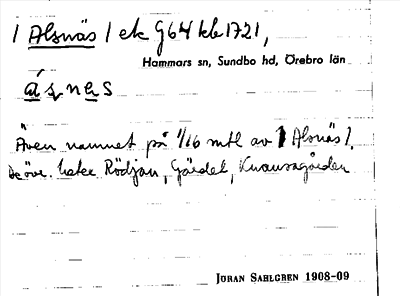 1 Alsnäs 1 ek G64 kb 1721,
Hammars sn, Sundbo hd, Örebro län
Även namnet på 1/16 mtl av 1 Alsnäs 1.
De övr. heter Rödjan, Gärdet, Knausagården
JÖRAN SAHLGREN 1908-09